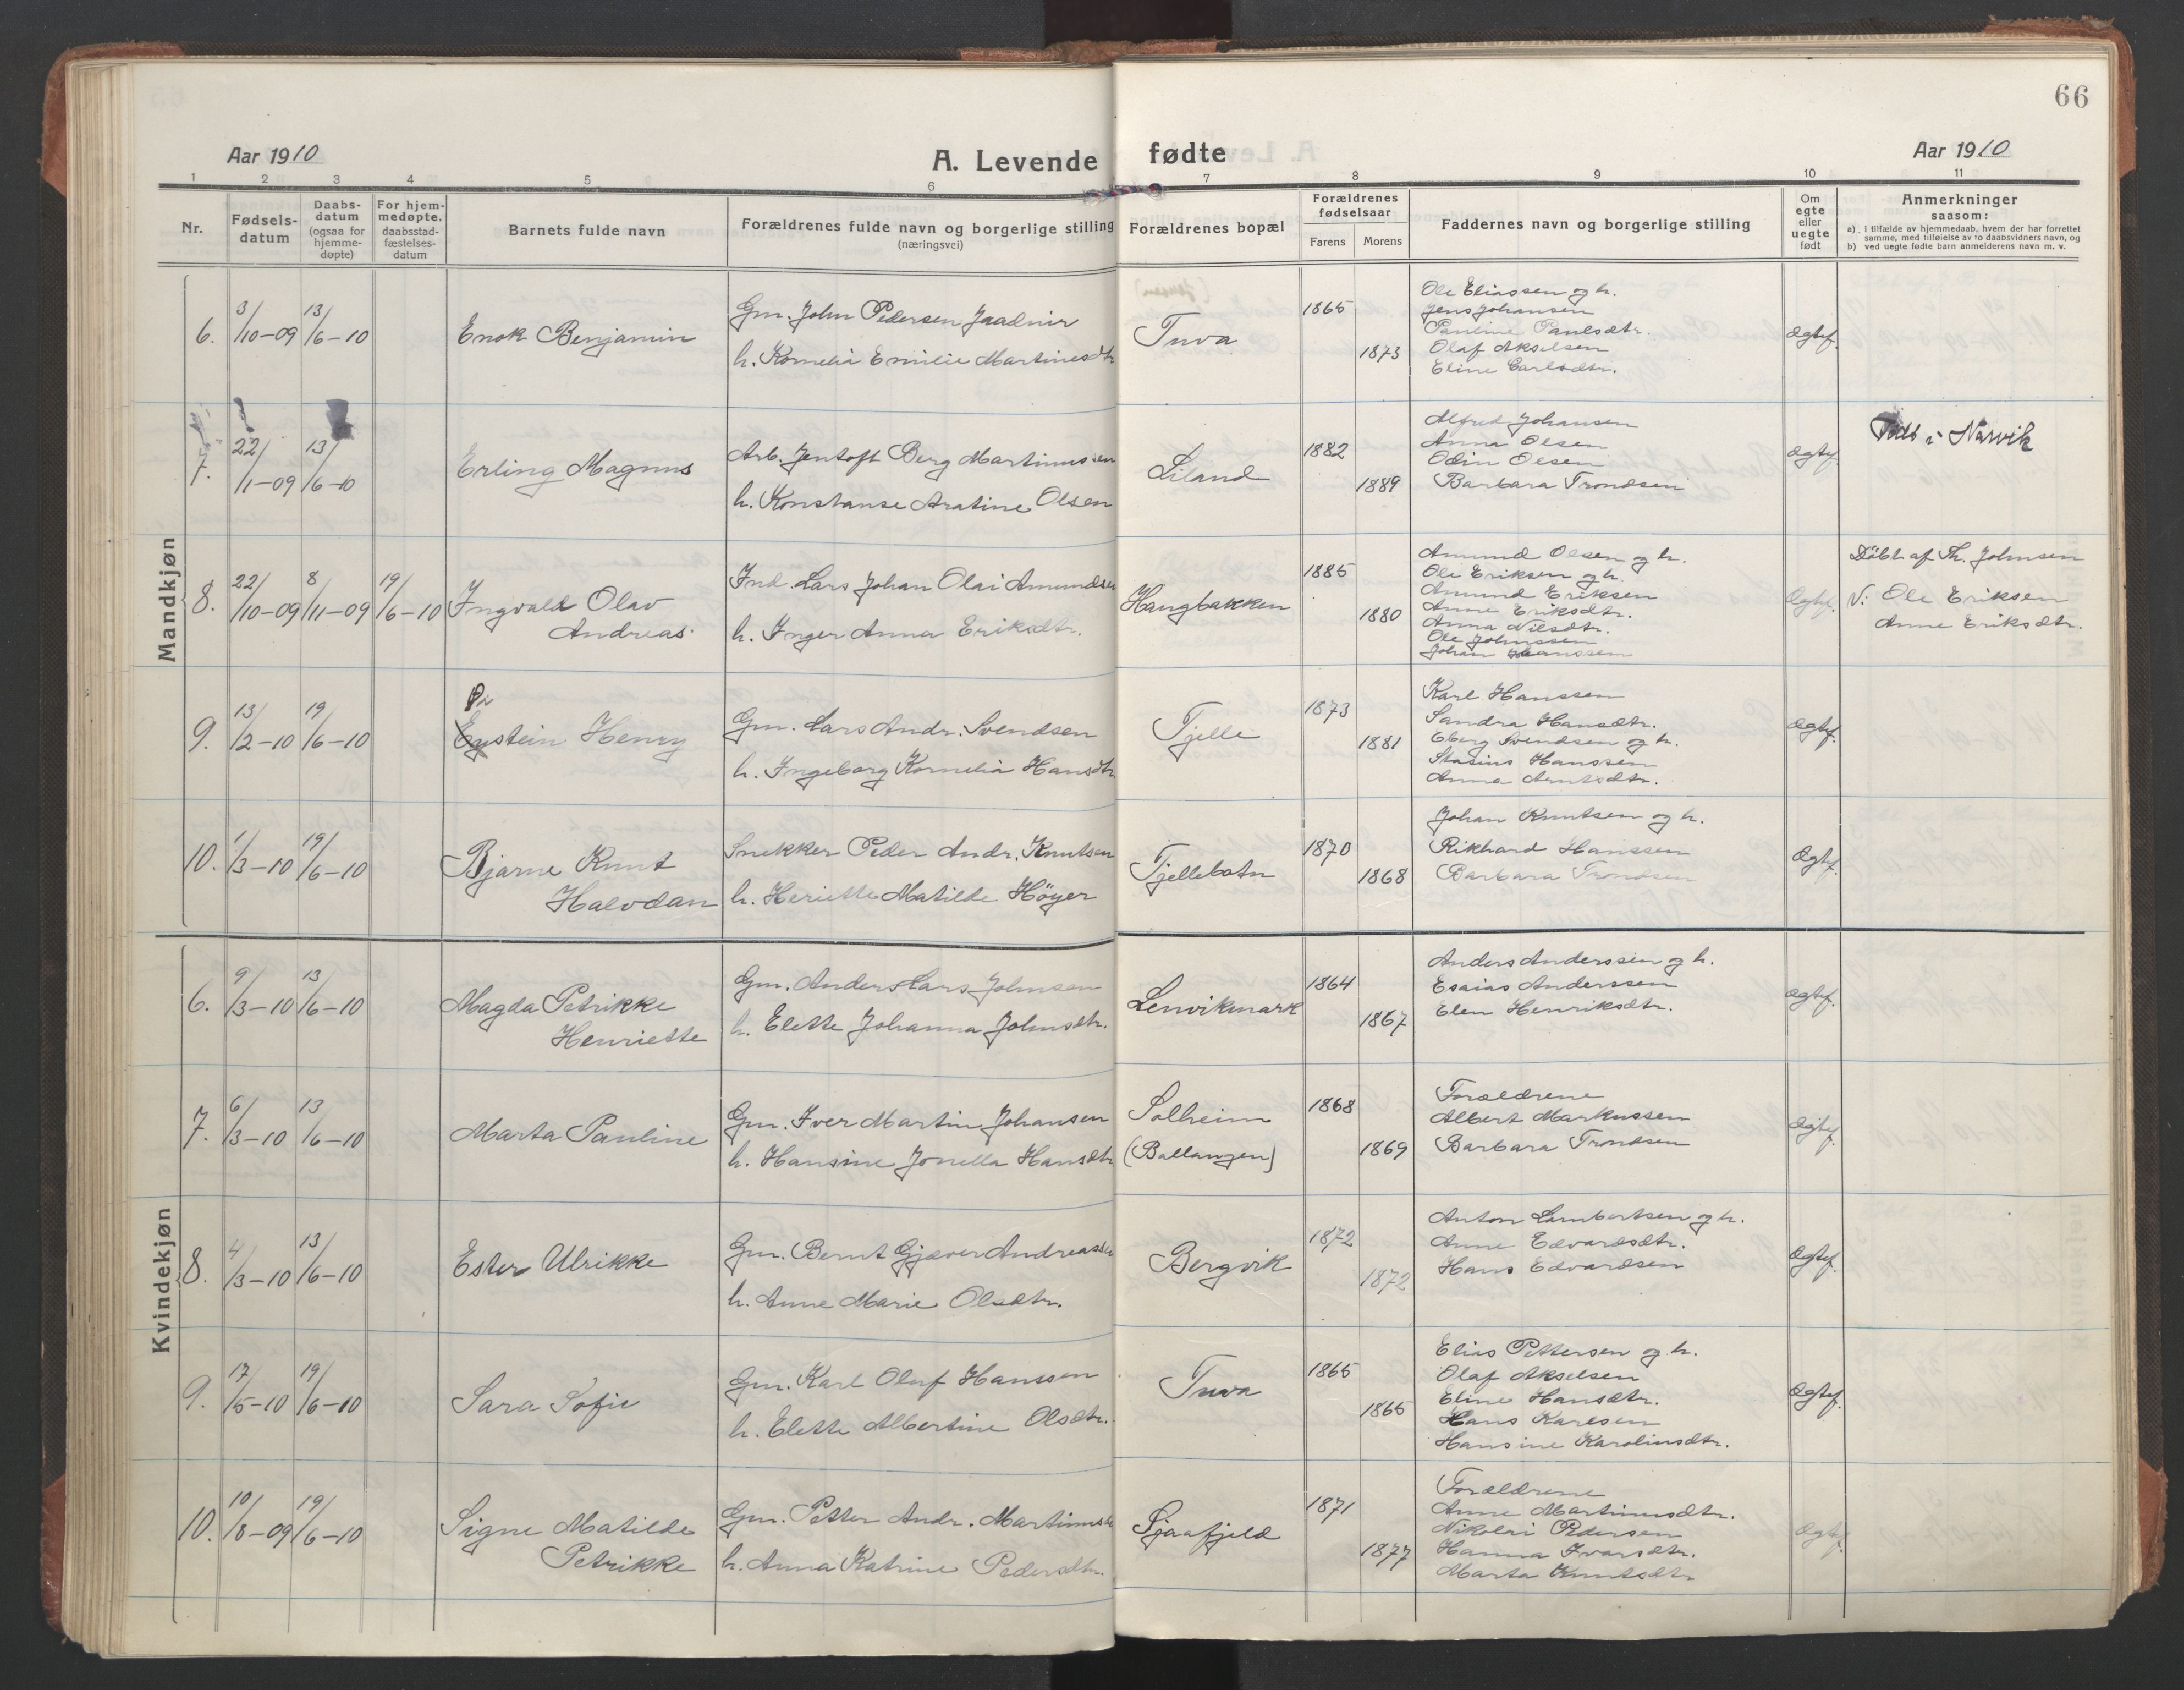 66
Aar 1910
A. Levende fødte
Aar 1910
1 2 3 4 5 6 7 8 9 10 11
Nr.
Fødsels-
datum
Daabs-
datum
(ogsaa for
hjemme-
døpte)
For hjem-
medøpte.
daabsstad-
fæstelses-
datum
Barnets fulde navn
Forældrenes fulde navn og borgerlige stilling
(næringsvei)
Forældrenes bopæl
Forældrenes
fødselsaar
Farens Morens
Faddernes navn og borgerlige stilling
Om
egte
eller
uegte
født
Anmerkninger
saasom:
a) i tilfælde av hjemmedaab, hvem der har forrettet
samme, med tilføielse av to daabsvidners navn, og
b) ved uegte fødte barn anmelderens navn m. v.
Mandkjøn
6. 3/10-09 13/6-10
Enok Benjamin
Gm. John Pedersen
h. Kornelia Emilie Martinesdtr
Tuva
1865
1873
Ole Eliassen og h.
Jens Johansen
Pauline Paulsdtr.
Olaf Akselsen
Eline Carlsdtr.
ægtef.
7. 22/1-09 13/6-10
Erling Magnus
Arb. Jentoft Berg Martinussen
h. Konstanse Aratine Olsen
Liland
1882
1889
Alfred Johansen
Anna Olsen
Odin Olsen
Barbara Trondsen
ægtef.
Født i Narvik
8. 22/10-09 8/11-09 19/6-10
Ingvald Olav
Andreas
Ind. Lars Johan Olai Amundsen
h. Inger Anna Eriksdtr.
Haugbakken
1885
1880
Amund Olsen og h.
Ole Eriksen og h.
Amund Eriksen
Anne Eriksdtr.
Anna Nilsdtr.
Ole Johnssen
Johan Hanssen
ægtef.
Döbt af Th. Johnsen
V: Ole Eriksen
Anne Eriksdtr.
9. 13/2-10 19/6-10
Øi
Eystein Henry
Gm. Lars Andr. Svendsen
h. Ingeborg Kornelia Hansdtr
Tjelle
1873
1881
Karl Hanssen
Sandra Hansdtr.
Eberg Svendsen og h.
Stasius Hanssen
Anna Arntsdtr.
ægtef.
10. 1/3-10 19/6-10
Bjarne Knut
Halvdan
Snekker Peder Andr. Knutsen
h. Heriette Matilde Höyer
Tjellebotn
1870
1868
Johan Knutsen og h.
Rikhard Hanssen
Barbara Trondsen
Ægtef.
Kvindekjøn
6. 9/3-10 13/6-10
Magda Petrikke
Henriette
Gm. Anders Lars Johnsen
h. Elette Johanna Johnsdtr.
Lenvikmark
1864
1867
Anders Anderssen og h.
Esaias Anderssen
Elen Henriksdtr.
ægtef.
7. 6/3-10 13/6-10
Marta Pauline
Gm. Iver Martin Johansen
h. Hansine Jonella Hansdtr
Solheim
(Ballangen)
1868
1869
Forældrene
Albert Markussen
Barbara Trondsen
ægtef.
8. 4/3-10 13/6-10
Ester Ulrikke
Gm. Bernt Gjæver Andreassen
h. Anne Marie Olsdtr.
Bergvik
1872
1872
Anton Lambertsen og h.
Anne Edvardsdtr.
Hans Edvardsen
Ægtef.
9. 17/5-10 19/6-10
Sara Sofie
Gm. Karl Oluf Hanssen
h. Elette Albertine Olsdtr.
Tuva
1865
1865
Elias Pettersen og h.
Olaf Akselsen
Eline Hansdtr.
Hans Karlsen
Hansine Karolinsdtr.
Ægtef.
10. 10/8-09 19/6-10
Signe Matilde
Petrikke
Gm. Petter Andr. Martinus
h. Anna Katrine Pedersdtr.
Sjaafjeld
1871
1877
Forældrene
Anne Martinusdtr.
Nikolai Pedersen
Hanna Ivarsdtr.
Marta Knutsdtr.
Ægtef.